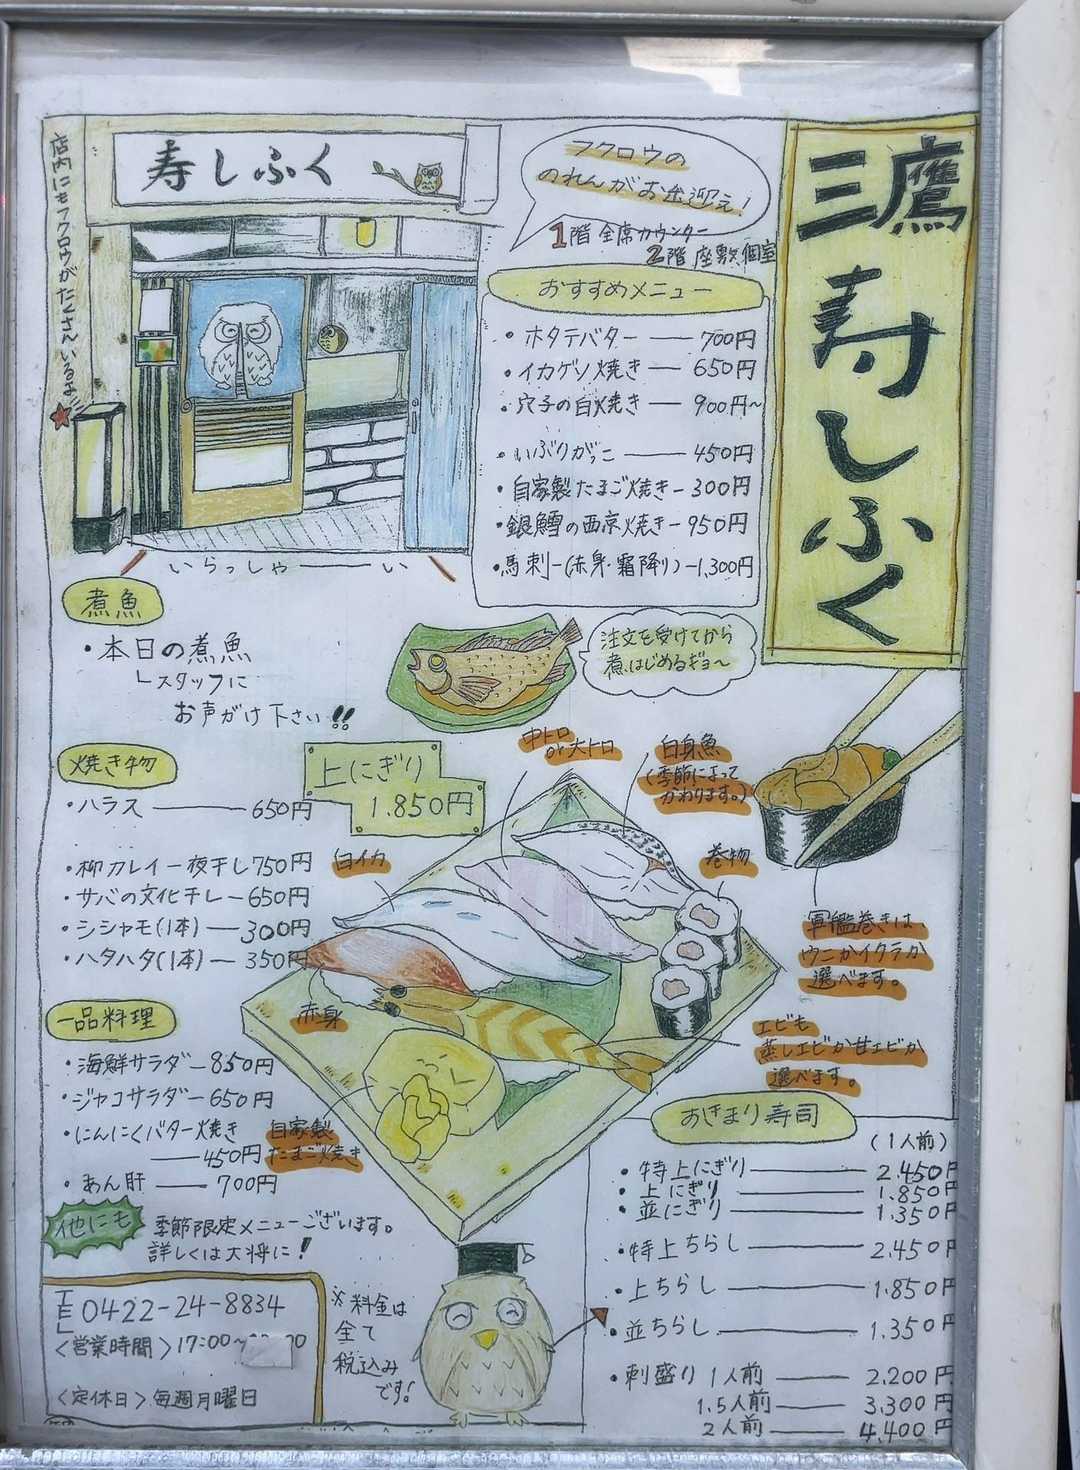 三鷹 寿しふく
寿しふく
店内にもフクロウがたくさんいるよ
フクロウの
のれんがお出迎え!
1階 全席カウンター
2階 座敷個室
おすすめメニュー
・ホタテバター ― 700円
・イカゲソ焼き ― 650円
・穴子の白焼き ― 900円~
・いぶりがっこ ― 450円
・自家製たまご焼き ― 300円
・銀鱈の西京焼き ― 950円
・馬刺 ―(赤身・霜降り)― 1,300円
いらっしゃ―――い
煮魚
・本日の煮魚
スタッフに
お声がけ下さい!!
注文を受けてから
煮はじめるギョ~
焼き物
・ハラス ― 650円
・柳カレイ一夜干し 750円
・サバの文化干し ― 650円
・シシャモ(1本) ― 300円
・ハタハタ(1本) ― 350円
上にぎり
1.850円
中トロ
or 大トロ
白身魚
(季節によって
かわります。)
白イカ
巻物
軍艦巻きは、
ウニかイクラか
選べます。
赤身
エビも
蒸しエビか甘エビか
選べます。
自家製
たまご焼き
一品料理
・海鮮サラダ ― 850円
・ジャコサラダ ― 650円
・にんにくバター焼き
― 450円
・あん肝 ― 700円
他にも
季節限定メニューございます。
詳しくは大将に!
おきまり寿司
(1人前)
・特上にぎり ― 2.450円
・上にぎり ― 1.850円
・並にぎり ― 1.350円
・特上ちらし ― 2.450円
・上ちらし ― 1.850円
・並ちらし ― 1.350円
・刺盛り 1人前 ― 2.200円
1.5人前 ― 3.300円
2人前 ― 4.400円
TEL 0422-24-8834
<営業時間> 17:00~
<定休日> 毎週月曜日
※料金は
全て
税込み
です!